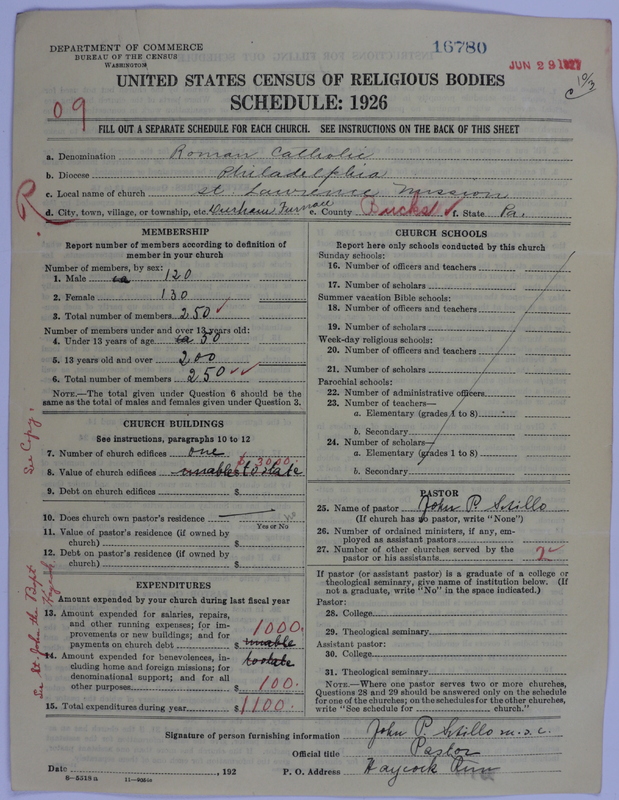 DEPARTMENT OF COMMERCE
BUREAU OF THE CENSUS
WASHINGTON
16780
JUN 29 1927
09
UNITED STATES CENSUS OF RELIGIOUS BODIES
SCHEDULE: 1926
FILL OUT A SEPARATE SCHEDULE FOR EACH CHURCH. SEE INSTRUCTIONS ON THE BACK OF THIS SHEET
a. Denomination Roman Catholic
b. Diocese Philadelphia
c. Local name of church St. Lawrence Mission
d. City, town, village, or township, etc. Durham Furnace e. County Bucks f. State Pa.
MEMBERSHIP
Report number of members according to definition of
member in your church
Number of members, by sex:
1. Male 120
2. Female 130
3. Total number of members 250
Number of members under and over 13 years old:
4. Under 13 years of age 50
5. 13 years old and over 200
6. Total number of members 250
NOTE.—The total given under Question 6 should be the
same as the total of males and females given under Question 3.
CHURCH BUILDINGS
See instructions, paragraphs 10 to 12
7. Number of church edifices one
8. Value of church edifices unable to state $ 3000.
9. Debt on church edifices $
10. Does church own pastor's residence no
Yes or No
11. Value of pastor's residence (if owned by
church) $
12. Debt on pastor's residence (if owned by
church) $
EXPENDITURES
Amount expended by your church during last fiscal year
13. Amount expended for salaries, repairs,
and other running expenses; for im-
provements or new buildings; and for
payments on church debt $ unable 1000.
14. Amount expended for benevolences, in-
cluding home and foreign missions; for
denominational support; and for all
other purposes $ to state 100.
15. Total expenditures during year $ 1100.
See Copy.
See St. John the Bapt
CHURCH SCHOOLS
Report here only schools conducted by this church
Sunday schools:
16. Number of officers and teachers
17. Number of scholars
Summer vacation Bible schools:
18. Number of officers and teachers
19. Number of scholars
Week-day religious schools:
20. Number of officers and teachers
21. Number of scholars
Parochial schools:
22. Number of administrative officers
23. Number of teachers—
a. Elementary (grades 1 to 8)
b. Secondary
24. Number of scholars—
a. Elementary (grades 1 to 8)
b. Secondary
PASTOR
25. Name of pastor John P. Sitillo
(If church has no pastor, write "None")
26. Number of ordained ministers, if any, em-
ployed as assistant pastors
27. Number of other churches served by the
pastor or his assistants 2
If pastor (or assistant pastor) is a graduate of a college or
theological seminary, give name of institution below. (If
not a graduate, write "No" in the space indicated.)
Pastor:
28. College
29. Theological seminary
Assistant pastor:
30. College
31. Theological seminary
NOTE.—Where one pastor serves two or more churches,
Questions 28 and 29 should be answered only on the schedule
for one of the churches; on the schedules for the other churches,
write "See schedule for church."
Signature of person furnishing information John P. Sitillo m.s.c.
Official title Pastor
Date , 192 P. O. Address Haycock Run
8-5318a